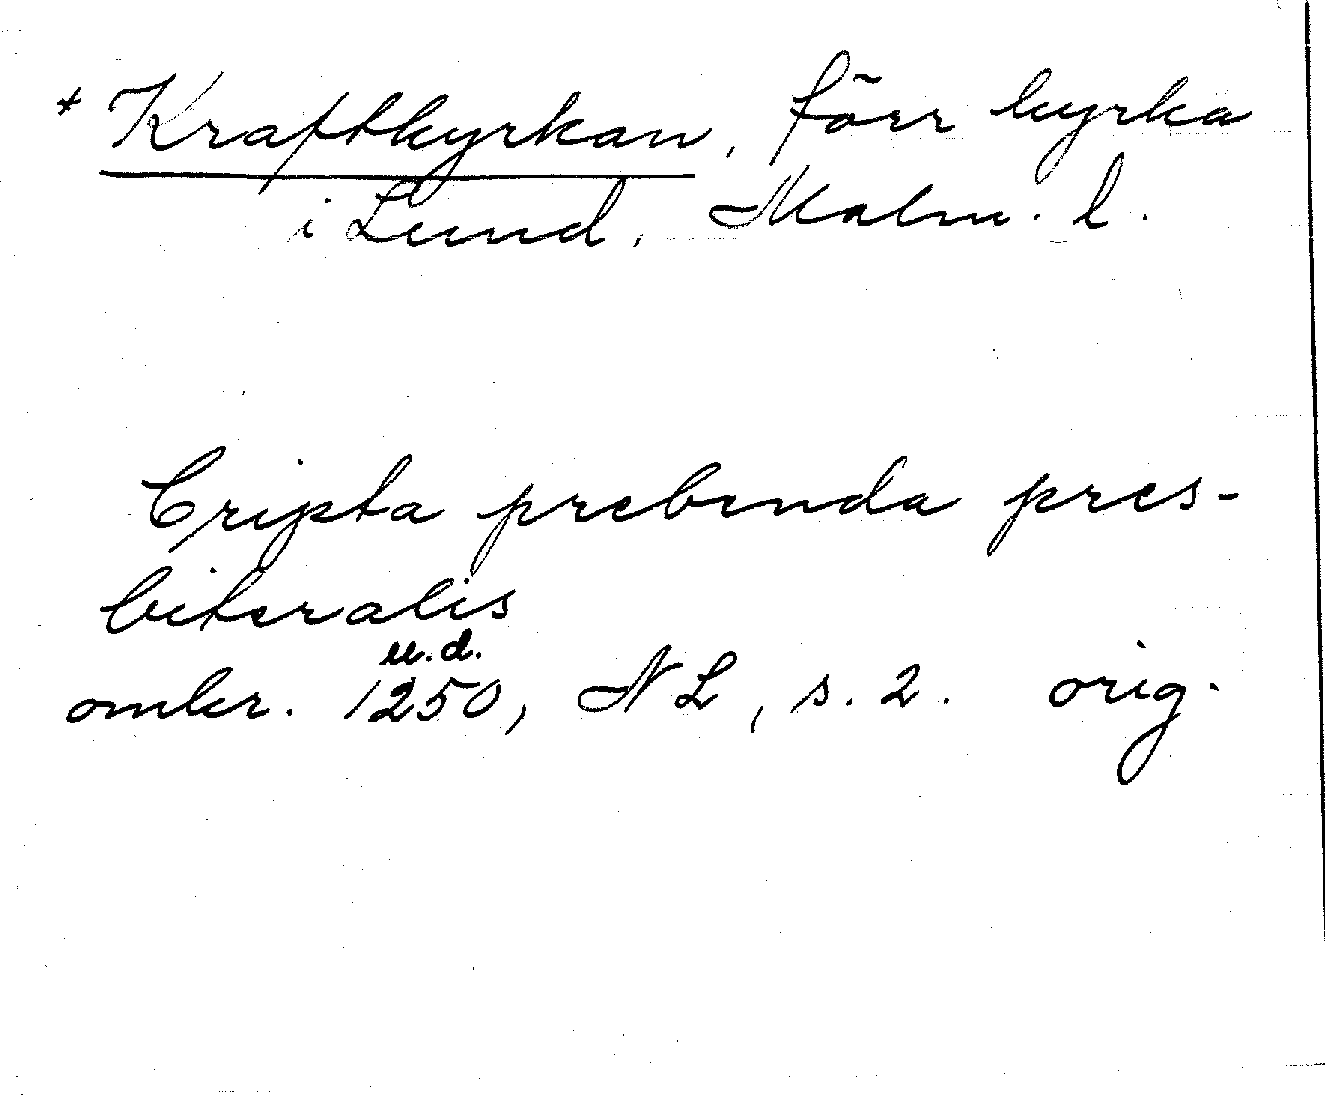 * Kraftkyrkan, förr kyrka
i Lund, Malm. l.
Cripta prebenda pres-
biteralis
u.d.
omkr. 1250, NL, s. 2. orig.